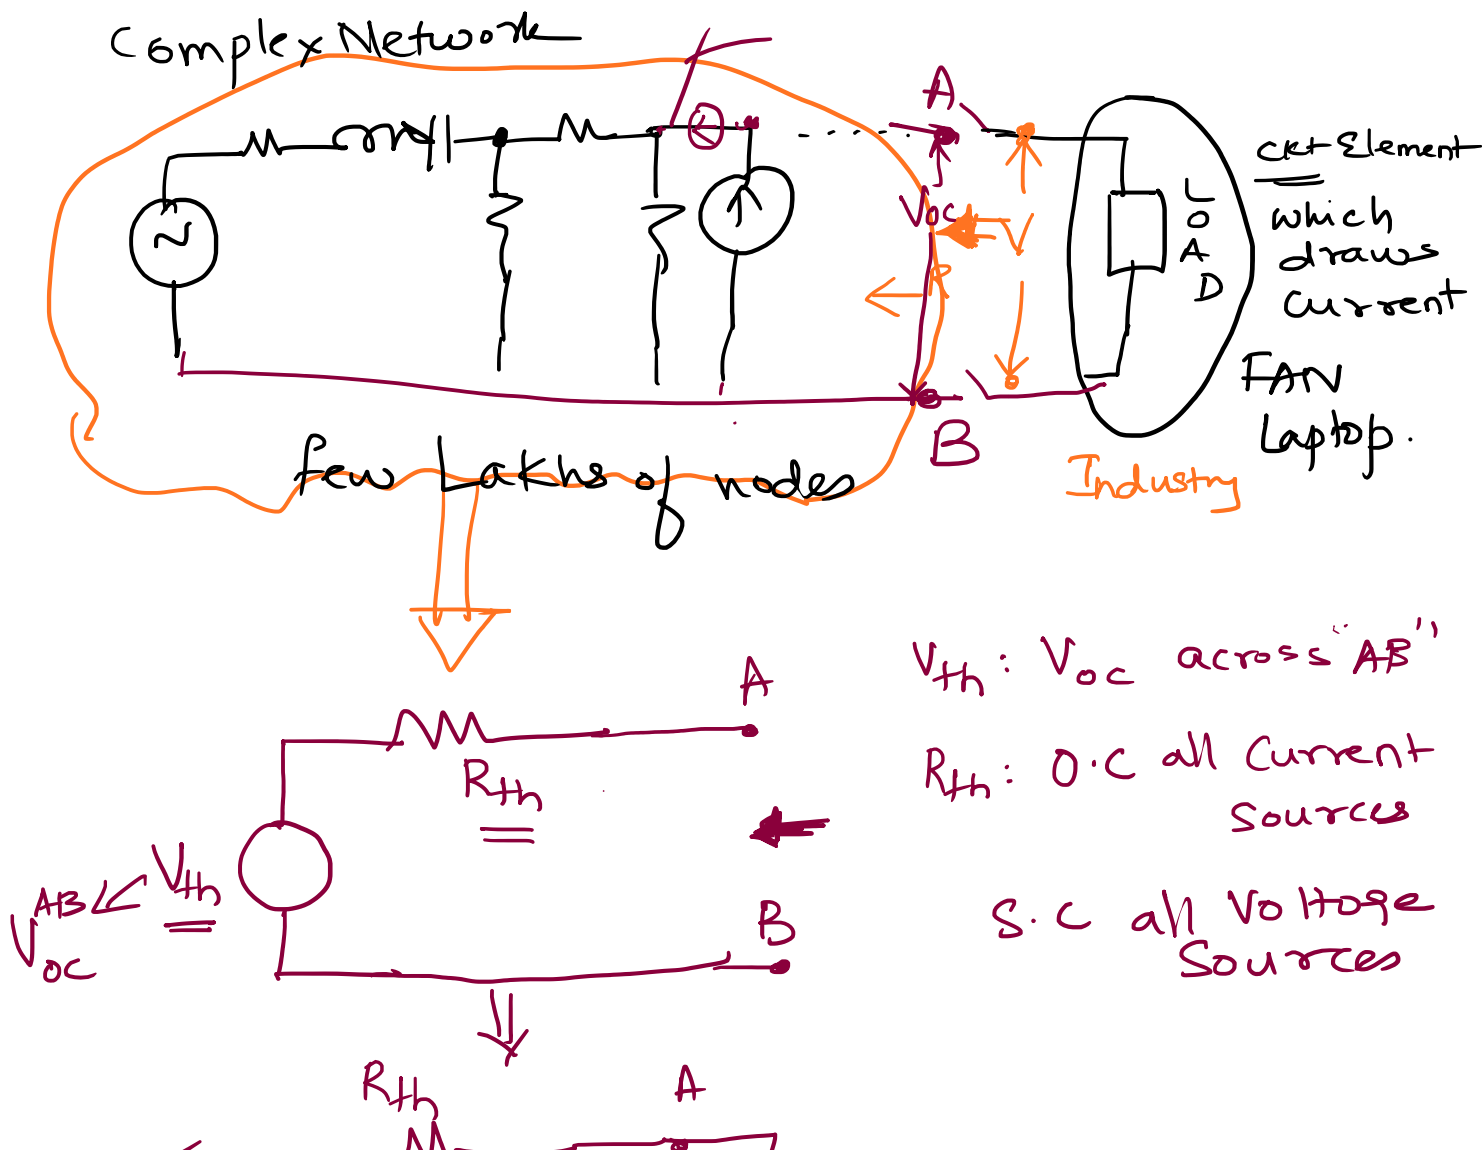 Complex Network
A
Voc
V
R
LOAD
ckt Element
which
draws
current
FAN
Laptop.
B
Industry
few Lakhs of nodes
A
Rth
Vth
AB
Voc
B
Vth : Voc across "AB"
Rth : O.C all Current
Sources
S.C all Voltage
Sources
Rth
A